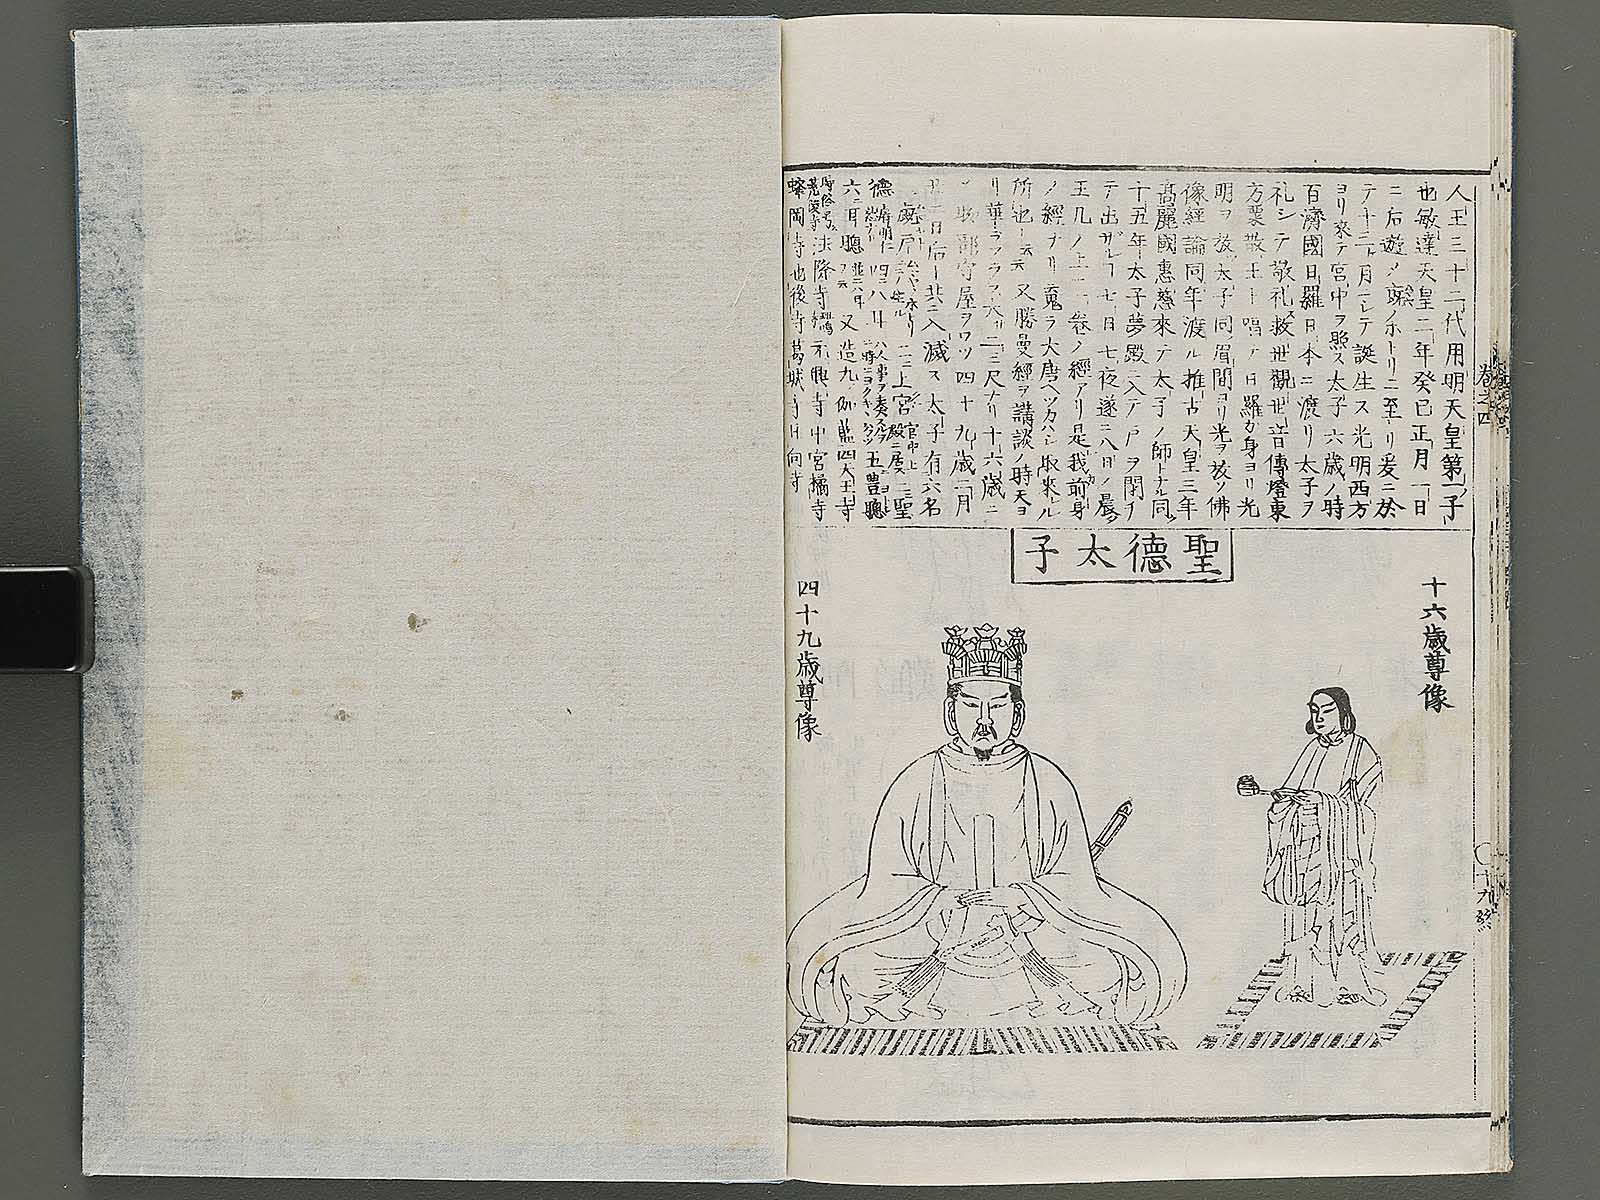 人王三十二代用明天皇第一子
也敏達天皇二年癸巳正月一日
ニ后遊ノ ノホトリニ至リ爰ニ於
テ十三月ニシテ誕生ス光明西方
ヨリ來テ宮中ヲ照ス太子六歳ノ時
百濟國日羅日本ニ渡リ太子ヲ
礼シテ敬礼救世觀世音傳燈東
方粟散王ト唱ヘ日羅カ身ヨリ光
明ヲ放太子同眉間ヨリ光ヲ放ツ佛
像經論同年渡ル推古天皇三年
髙麗國惠慈來テ太子ノ師トナル同
十五年太子夢殿ニ入テ戸ヲ閉チ
テ出ザルヿ七日七夜遂ニ八日ノ晨
玉几ノ上ニ一卷ノ經アリ是我前身
ノ經ナリ魂ヲ大唐ヘツカハシ取來ル
所也ト云云又勝曼經ヲ講談ノ時天ヨ
リ華フラス大サ二三尺ナリ十六歳ニ
 守屋ヲウツ四十九歳二月
廿二日后ト共ニ入滅ス太子有六名
 厩戸 二ニ上宮 三聖
德 四八耳 五豊聰
六ニ耳聰 又造九伽藍四天王寺
法隆寺 元興寺中宮橘寺
蜂岡寺也後寺葛城寺日向寺
聖德太子
十六歳尊像
四十九歳尊像
卷之四
十九終